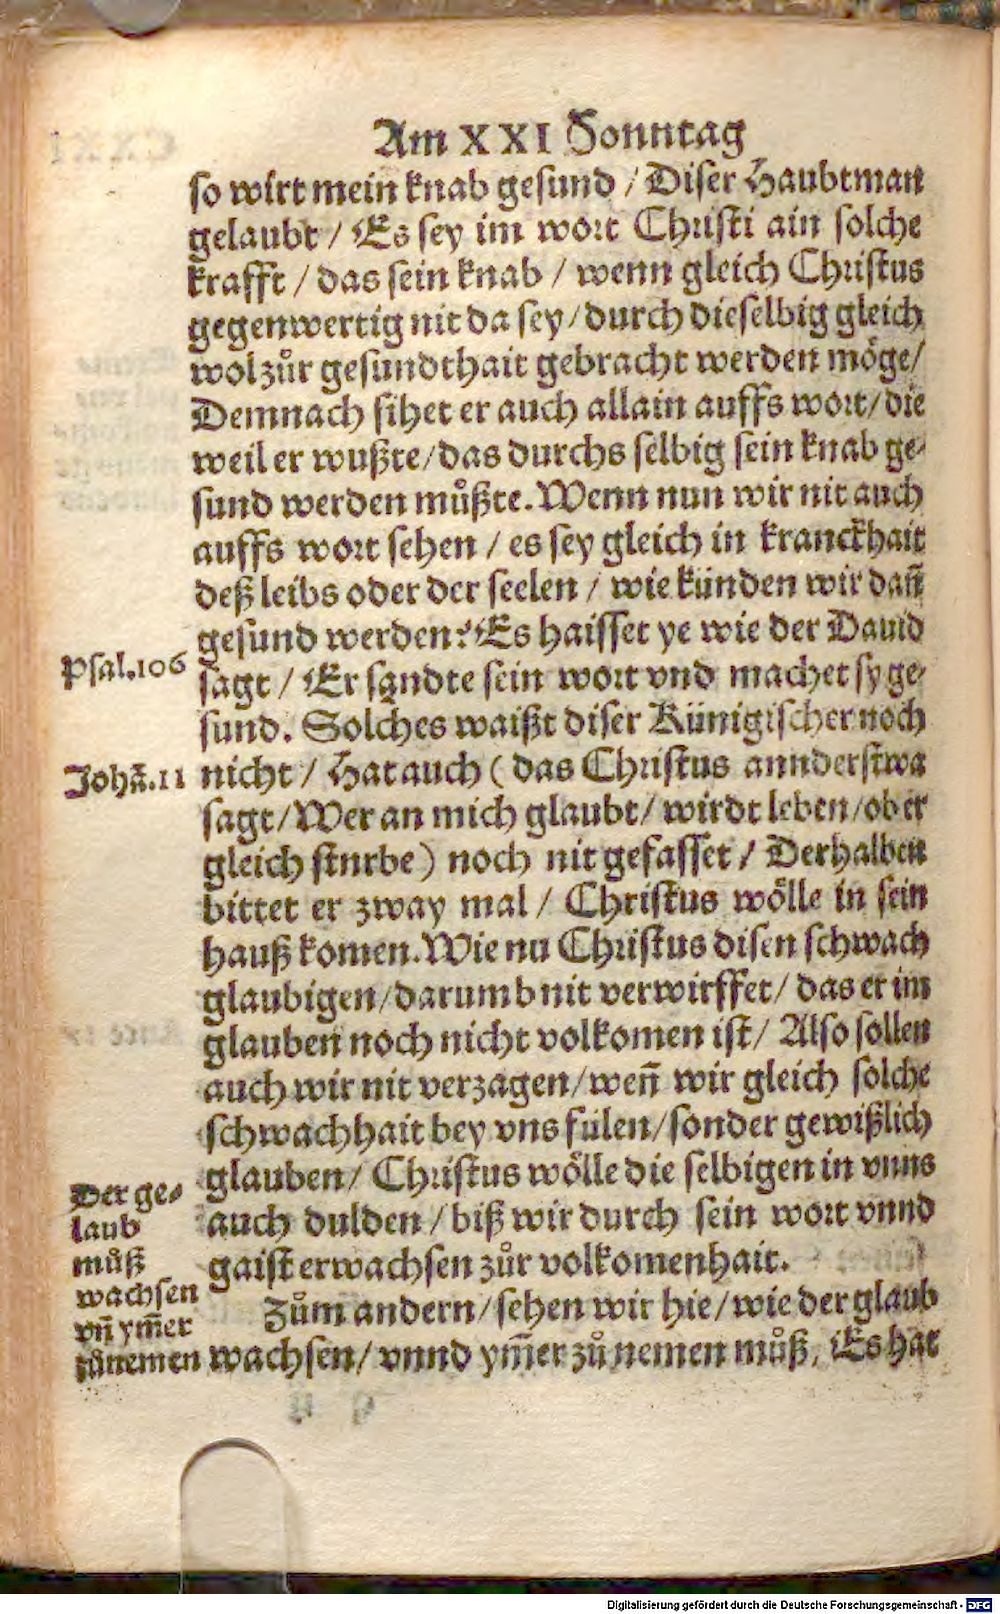 Am XXI Sonntag
so wirt mein knab gesund / Diser Haubtman
gelaubt / Es sey im wort Christi ain solche
krafft / das sein knab / wenn gleich Christus
gegenwertig nit da sey / durch dieselbig gleich
wol zůr gesundthait gebracht werden möge /
Demnach sihet er auch allain auffs wort / die
weil er wußte / das durchs selbig sein knab ge-
sund werden můßte. Wenn nun wir nit auch
auffs wort sehen / es sey gleich in kranckhait
deß leibs oder der seelen / wie künden wir dañ
gesund werden? Es haisset ye wie der Dauid
Psal.106
sagt / Er sandte sein wort vnd machet sy ge-
sund. Solches waißt diser Künigischer noch
Johã.11
nicht / Hat auch ( das Christus annderstwa
sagt / Wer an mich glaubt / wirdt leben / ob er
gleich sturbe ) noch nit gefasset / Derhalben
bittet er zway mal / Christus wölle in sein
hauß komen. Wie nu Christus disen schwach
glaubigen / darumb nit verwirffet / das er im
glauben noch nicht volkomen ist / Also sollen
auch wir nit verzagen / weñ wir gleich solche
schwachhait bey vns fülen / sonder gewißlich
glauben / Christus wölle die selbigen in vnns
auch dulden / biß wir durch sein wort vnnd
gaist erwachsen zůr volkomenhait.
Zům andern / sehen wir hie / wie der glaub
wachsen / vnnd ym̃er zů nemen můß. Es hat
Der ge-
laub
můß
wachsen
vñ ym̃er
zůnemen
Digitalisierung gefördert durch die Deutsche Forschungsgemeinschaft - DFG